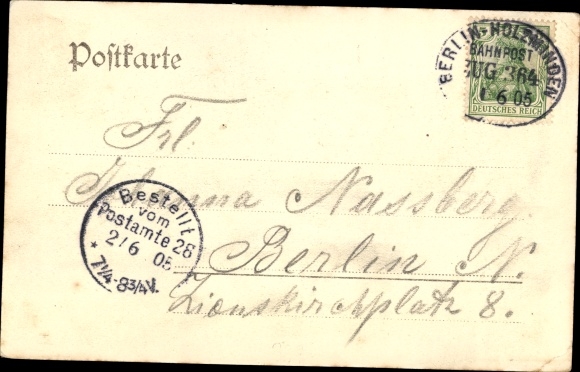 Postkarte
BERLIN-HOLZMINDEN
BAHNPOST
ZUG 364
1 6 05
DEUTSCHES REICH
Frl.
Johanna Nassberg.
Bestellt
vom
Postamte 28
2/6 05
* 7¼-8¾V.
Berlin N.
Zionskirchplatz 8.